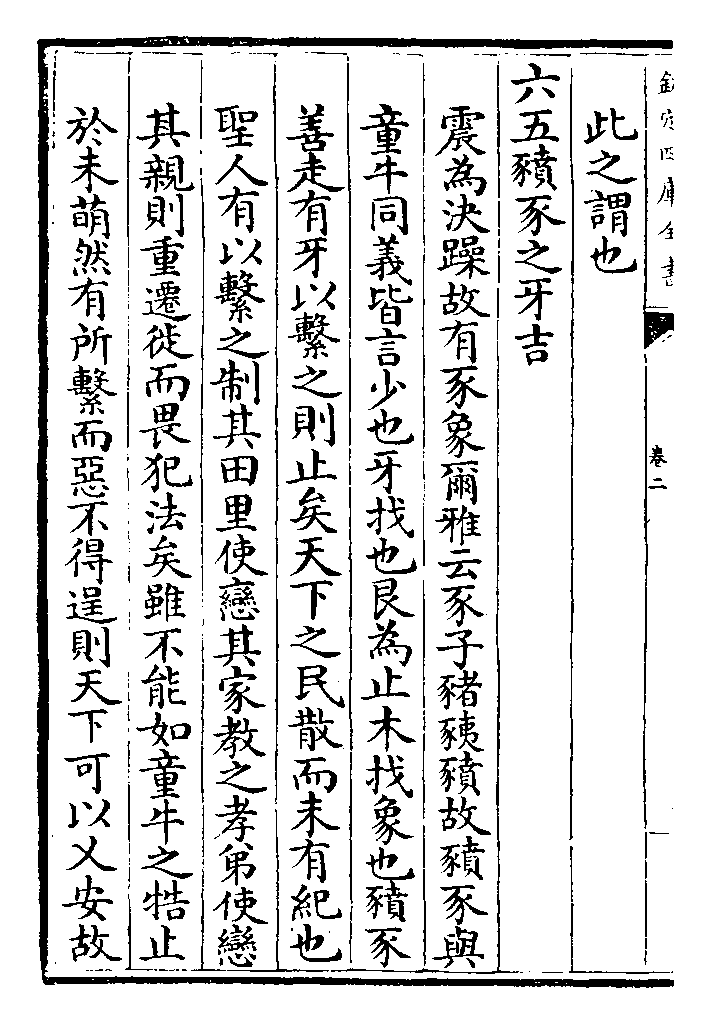 欽定四庫全書
卷二
此之謂也
六五豶豕之牙吉
震為決躁故有豕象爾雅云豕子豬䝐豶故豶豕與
童牛同義皆言少也牙找也艮為止木找象也豶豕
善走有牙以繫之則止矣天下之民散而未有紀也
聖人有以繫之制其田里使戀其家教之孝弟使戀
其親則重遷徙而畏犯法矣雖不能如童牛之牿止
於未萌然有所繫而惡不得逞則天下可以乂安故